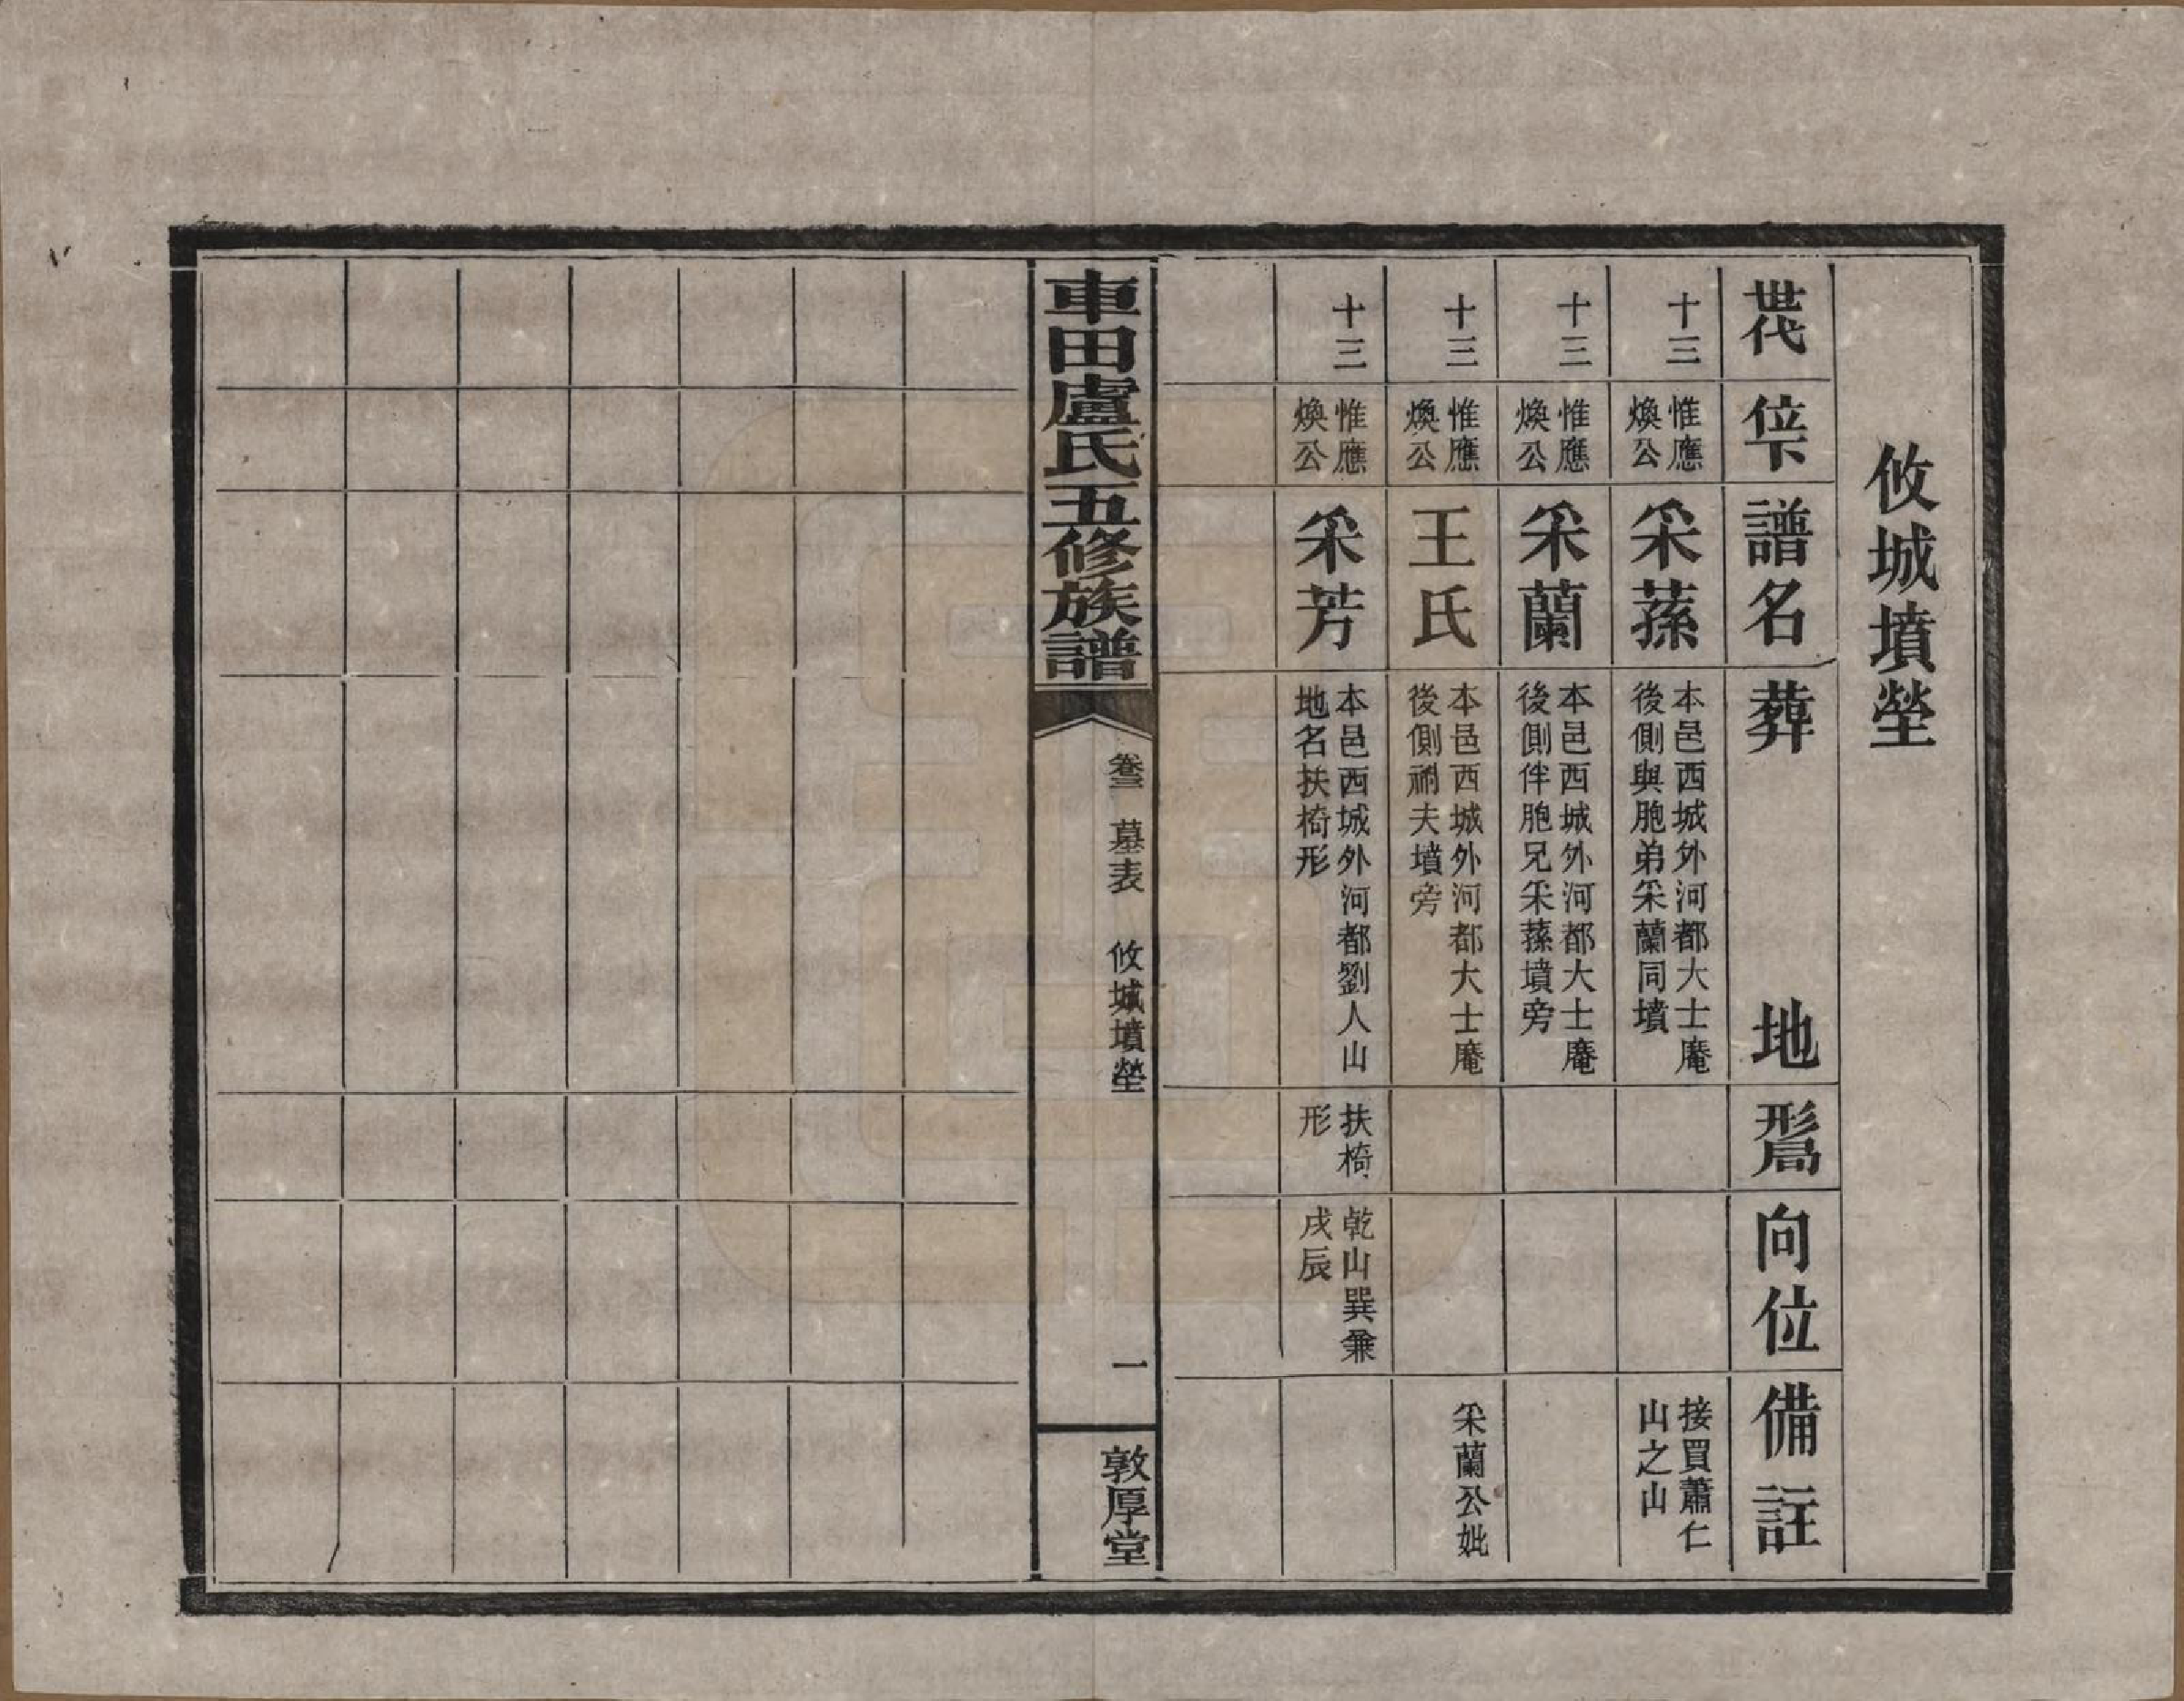 攸城墳塋
世代
倍下
譜名
葬地
形局
向位
備註
十三
惟應
煥公
采蓀
本邑西城外河都大士庵
後側與胞弟采蘭同墳
接買蕭仁
山之山
十三
惟應
煥公
采蘭
本邑西城外河都大士庵
後側伴胞兄采蓀墳旁
十三
惟應
煥公
王氏
本邑西城外河都大士庵
後側祔夫墳旁
采蘭公妣
十三
惟應
煥公
采芳
本邑西城外河都劉人山
地名扶椅形
扶椅
形
乾山巽兼
戌辰
車田盧氏五修族譜
卷三 墓表 攸城墳塋
一
敦厚堂